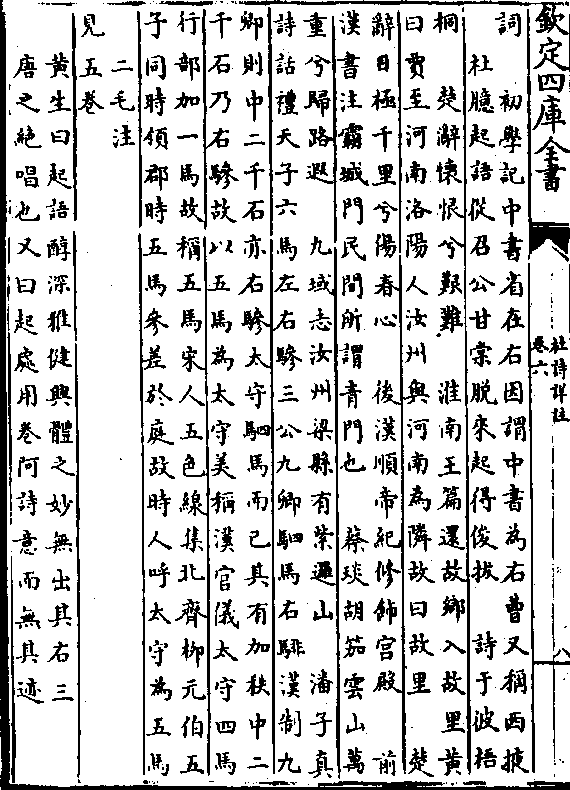 欽定四庫全書
杜詩詳註
卷六
八
詞　初學記中書省在右因謂中書為右曹又稱西掖
杜臆起語從召公甘棠脫來起得俊拔　詩于彼梧
桐　楚辭懷恨兮艱難　淮南王篇還故鄉入故里黄
曰賈至河南洛陽人汝州與河南為隣故曰故里　楚
辭目極千里兮傷春心　後漢順帝紀修飾宫殿　前
漢書注霸城門民間所謂青門也　蔡琰胡笳雲山萬
重兮歸路遐　九域志汝州梁縣有紫邏山　潘子真
詩話禮天子六馬左右驂三公九卿駟馬右騑漢制九
卿則中二千石亦右驂太守駟馬而已其有加秩中二
千石乃右驂故以五馬為太守美稱漢官儀太守四馬
行部加一馬故稱五馬宋人五色線集北齊柳元伯五
子同時領郡時五馬參差於庭故時人呼太守為五馬
二毛注
見五卷
黄生曰起語醇深雅健興體之妙無出其右三
唐之絶唱也又曰起處用卷阿詩意而無其迹